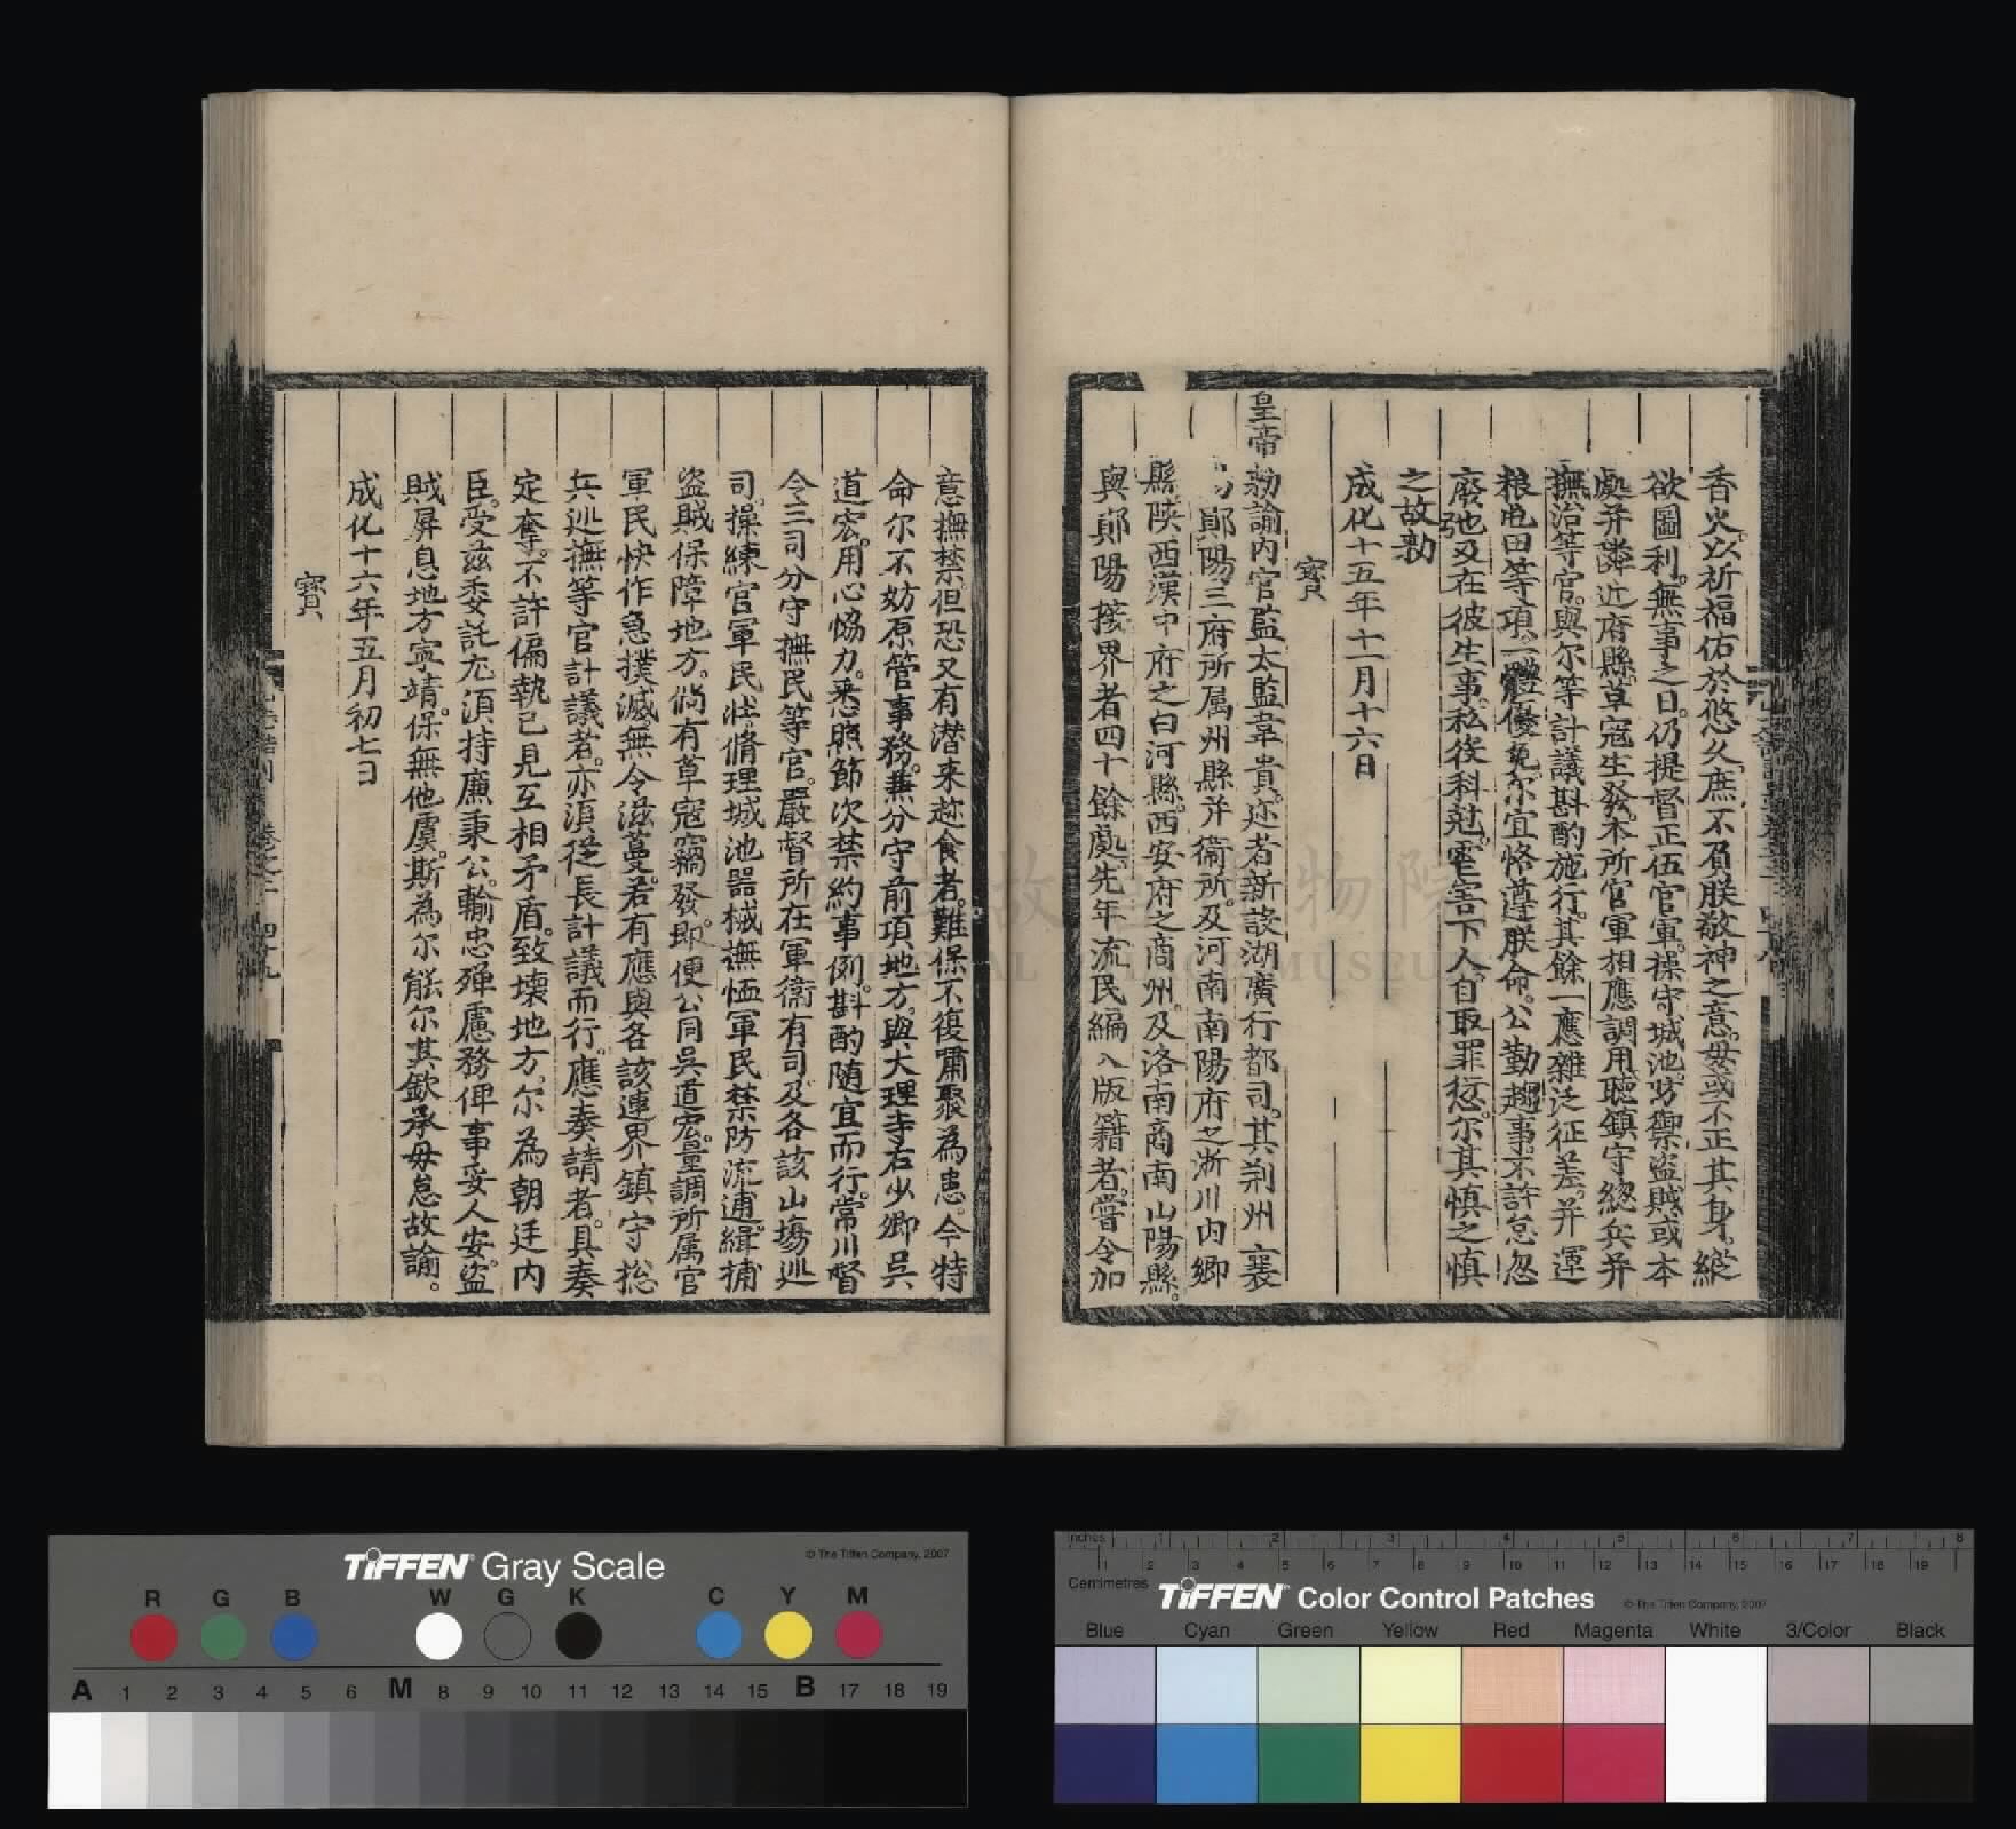 香火以祈福佑於悠久庶不負朕敬神之意毋或不正其身縱
欲圖利無事之日仍提督正伍官軍操守城池防禦盜賊或本
處并隣近府縣草寇生發本所官軍相應調用聽鎮守總兵并
撫治等官與尔等計議斟酌施行其餘一應雜泛征差并運
粮屯田等項一體優免尔宜恪遵朕命公勤趨事不許怠忽
廢弛及在彼生事私役科尅害下人自取罪愆尔其慎之慎
之故勅
成化十五年十一月十六日
寳
皇帝勅諭内官監太監韋貴迩者新設湖廣行都司其荆州襄
鄖陽三府所属州縣并衞所及河南南陽府之淅川内鄉
縣陝西漢中府之白河縣西安府之商州及洛南商南山陽縣
與鄖陽接界者四十餘處先年流民編入版籍者嘗令加
意撫禁但恐又有潜来趂食者難保不復嘯聚為患今特
命尔不妨原管事務兼分守前項地方與大理寺右少卿吳
道宏用心恊力悉照節次禁約事例斟酌随宜而行常川督
令三司分守撫民等官嚴督所在軍衞有司及各該山塲廵
司操練官軍民壮脩理城池器械撫恤軍民禁防流逋緝捕
盗賊保障地方倘有草寇竊發即便公同吳道宏量調所属官
軍民快作急撲滅無令滋蔓若有應與各該連界鎮守捴
兵廵撫等官計議者亦須從長計議而行應奏請者具奏
定奪不許偏執已見互相矛盾致壊地方尔為朝廷内
臣受兹委託尤須持廉秉公輸忠殫慮務俾事妥人安盗
賊屏息地方寧靖保無他虞斯為尔能尔其欽承毋怠故諭
成化十六年五月初七日
寳
TIFFEN Gray Scale
© The Tiffen Company, 2007
R G B W G K C Y M
A 1 2 3 4 5 6 M 8 9 10 11 12 13 14 15 B 17 18 19
Inches 1 2 3 4 5 6 7 8
1 2 3 4 5 6 7 8 9 10 11 12 13 14 15 16 17 18 19
Centimetres
TIFFEN Color Control Patches
© The Tiffen Company, 2007
Blue Cyan Green Yellow Red Magenta White 3/Color Black